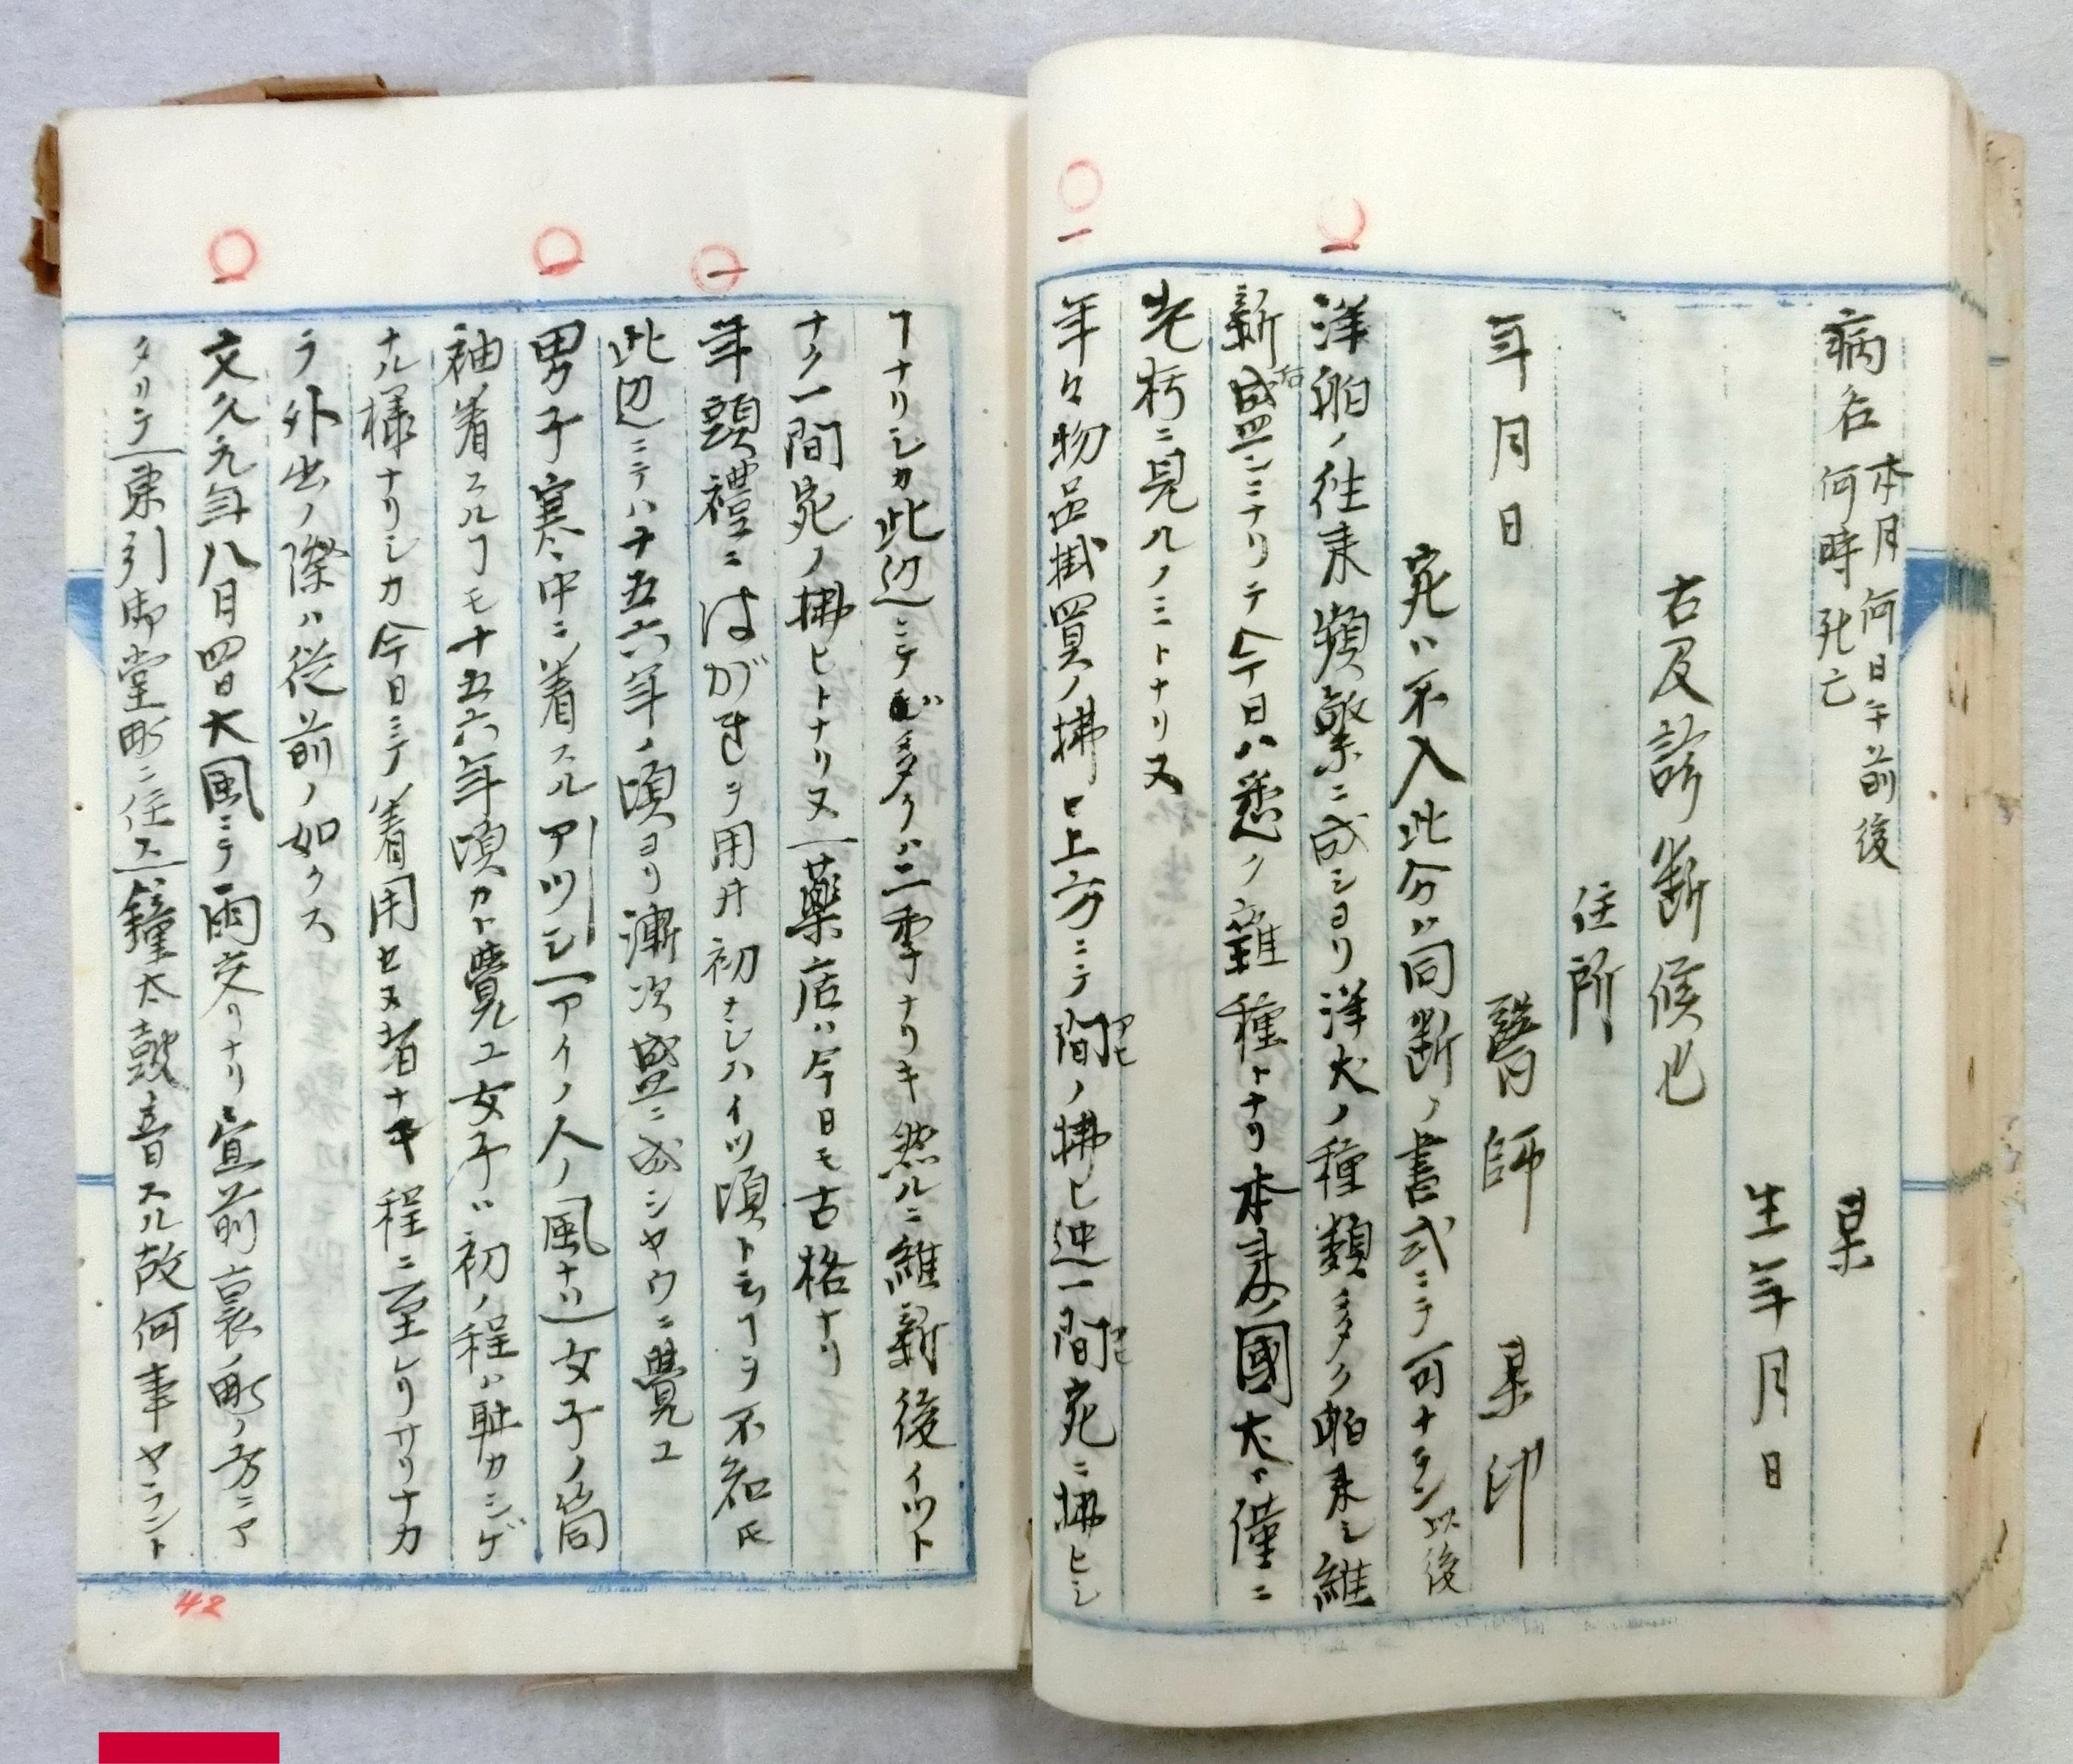 病名 本月何日午前後
何時死亡 某
生年月日
右及診断候也
住所
年月日 醫師 某印
宛ハ不入此分ハ同断ノ書式ニテ可ナラン以後
一洋舶ノ往来頻繁ニ成シヨリ洋犬ノ種類多ク舶来シ維
新盛ンニナリテ今日ハ悉ク雜種トナリ本来ノ國犬ト僅ニ
老朽ニ見ルノミトナリ又
一年々物品掛買ノ拂ヒ上方ニテ間ノ拂ヒ迚一間宛ニ拂ヒシ
アヒ
アヒ
ヿナリシカ此辺ニテ多クハ二季ナリキ然ルニ維新後イツト
ナク一間宛ノ拂ヒトナリ又薬店ハ今日モ古格ナリ
一年頭禮ニはがきヲ用井初ナシハイツ頃ト云フヿヲ不知氏
此辺ニテハ十五六年ノ頃ヨリ漸次盛ニ成シヤウニ覺ユ
一男子寒中ニ着スルアツシアイノ人ノ風ナリ女子ノ筒
袖ノ着スルヿモ十五六年頃カト覺ユ女子ハ初ノ程ハ耻カシゲ
ナル様ナリシカ今日ニテ着用セヌ者ナキ程ニ至レリサリナカ
ラ外出ノ際ハ従前ノ如クス
一文久元年八月四日大風ニテ雨交リナリ宣前裏ノ町ノ方ニア
タリテ東引御堂町ニ住ス鐘太鼓音スル故何事ヤラント
42